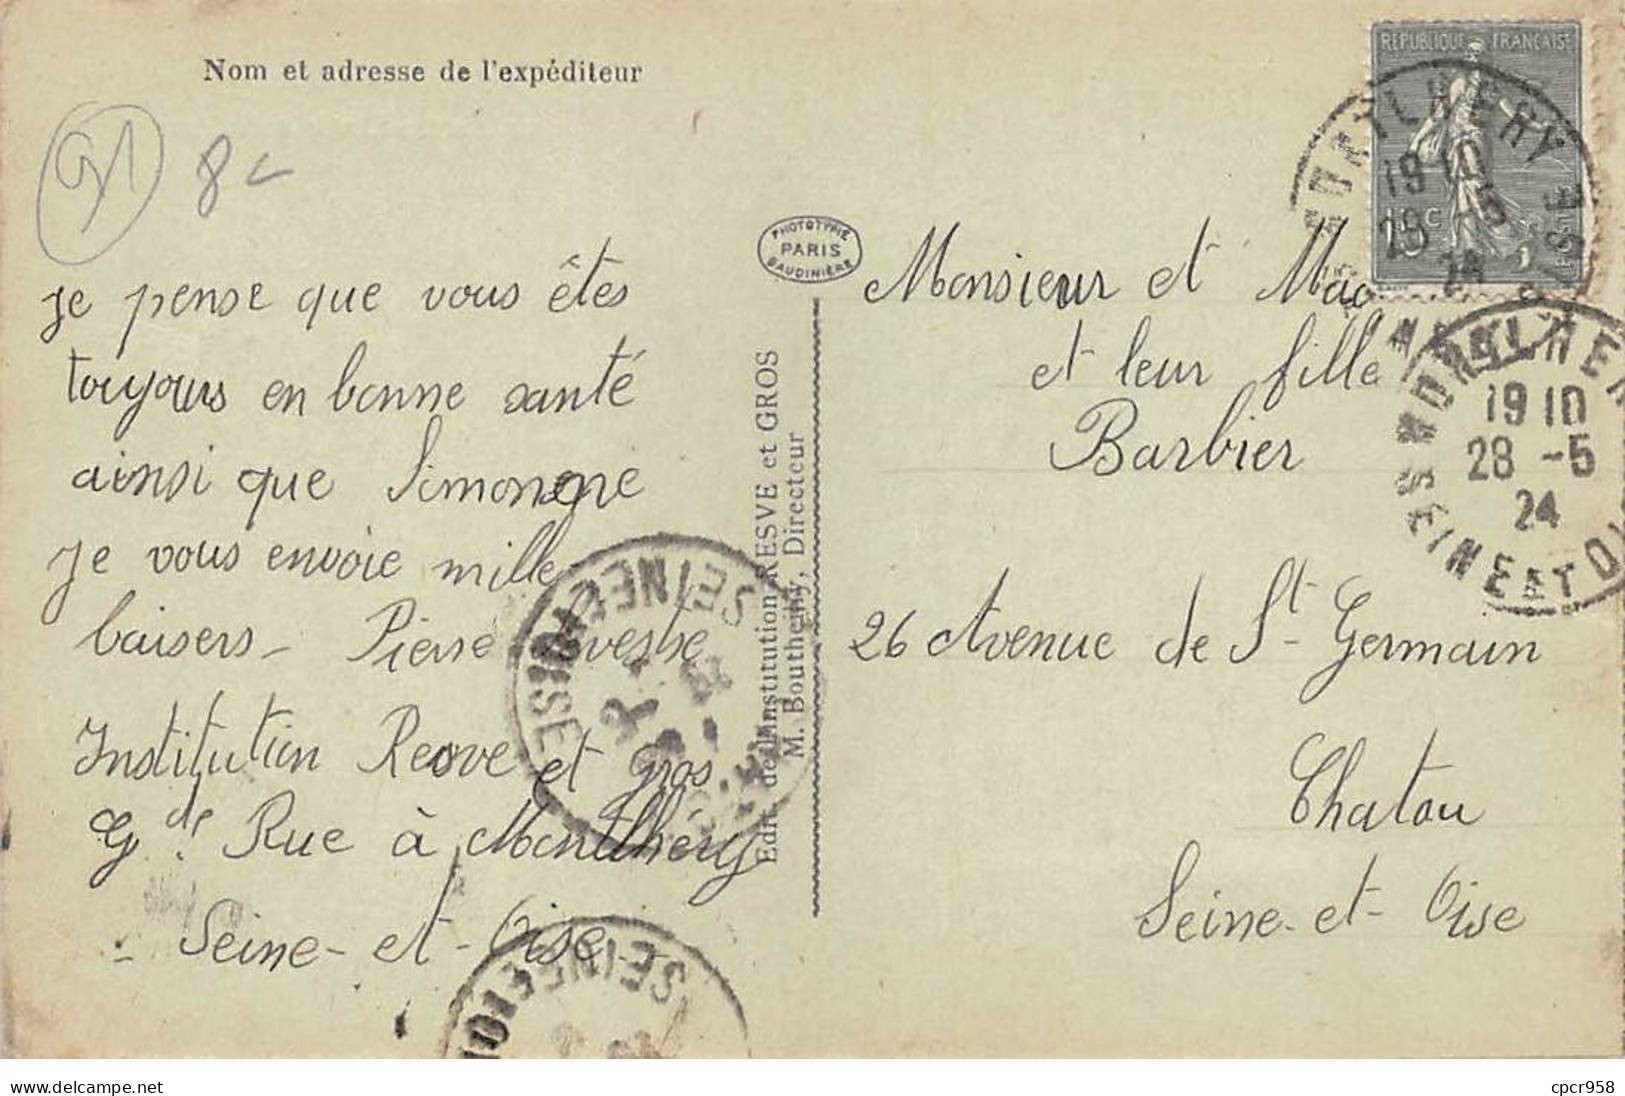 Nom et adresse de l'expéditeur
91 8
je pense que vous êtes
toujours en bonne santé
ainsi que Simonne
je vous envoie mille
baisers - Pierre
Institution Resve et Gros
Gde Rue à Montlhéry
- Seine-et-Oise -
PHOTOTYPIE
PARIS
BAUDINIÈRE
Edit. de l'Institution RESVE et GROS
M. Bouthemy, Directeur
REPUBLIQUE FRANÇAISE
MONTLHERY
19 10
28 -5
24
Monsieur et
et leur fille
Barbier
26 Avenue de St-Germain
Chatou
Seine-et-Oise
MONTLHERY
19 10
28 -5
24
SEINE ET OISE
SEINE ET OISE
SEINE ET OI
cpcr958